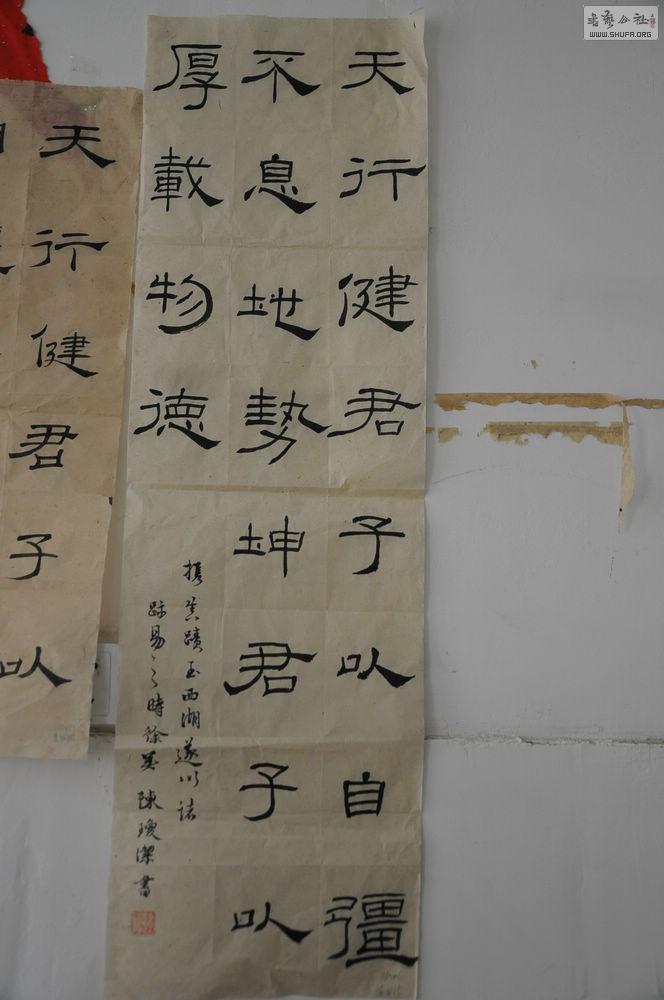 天行健君子以自彊
不息地勢坤君子以
厚載物德
携真蹟至西湖遂以諸
跡易之時徐 陳瓊潔書
天行健君子以
书艺公社
WWW.SHUFA.ORG